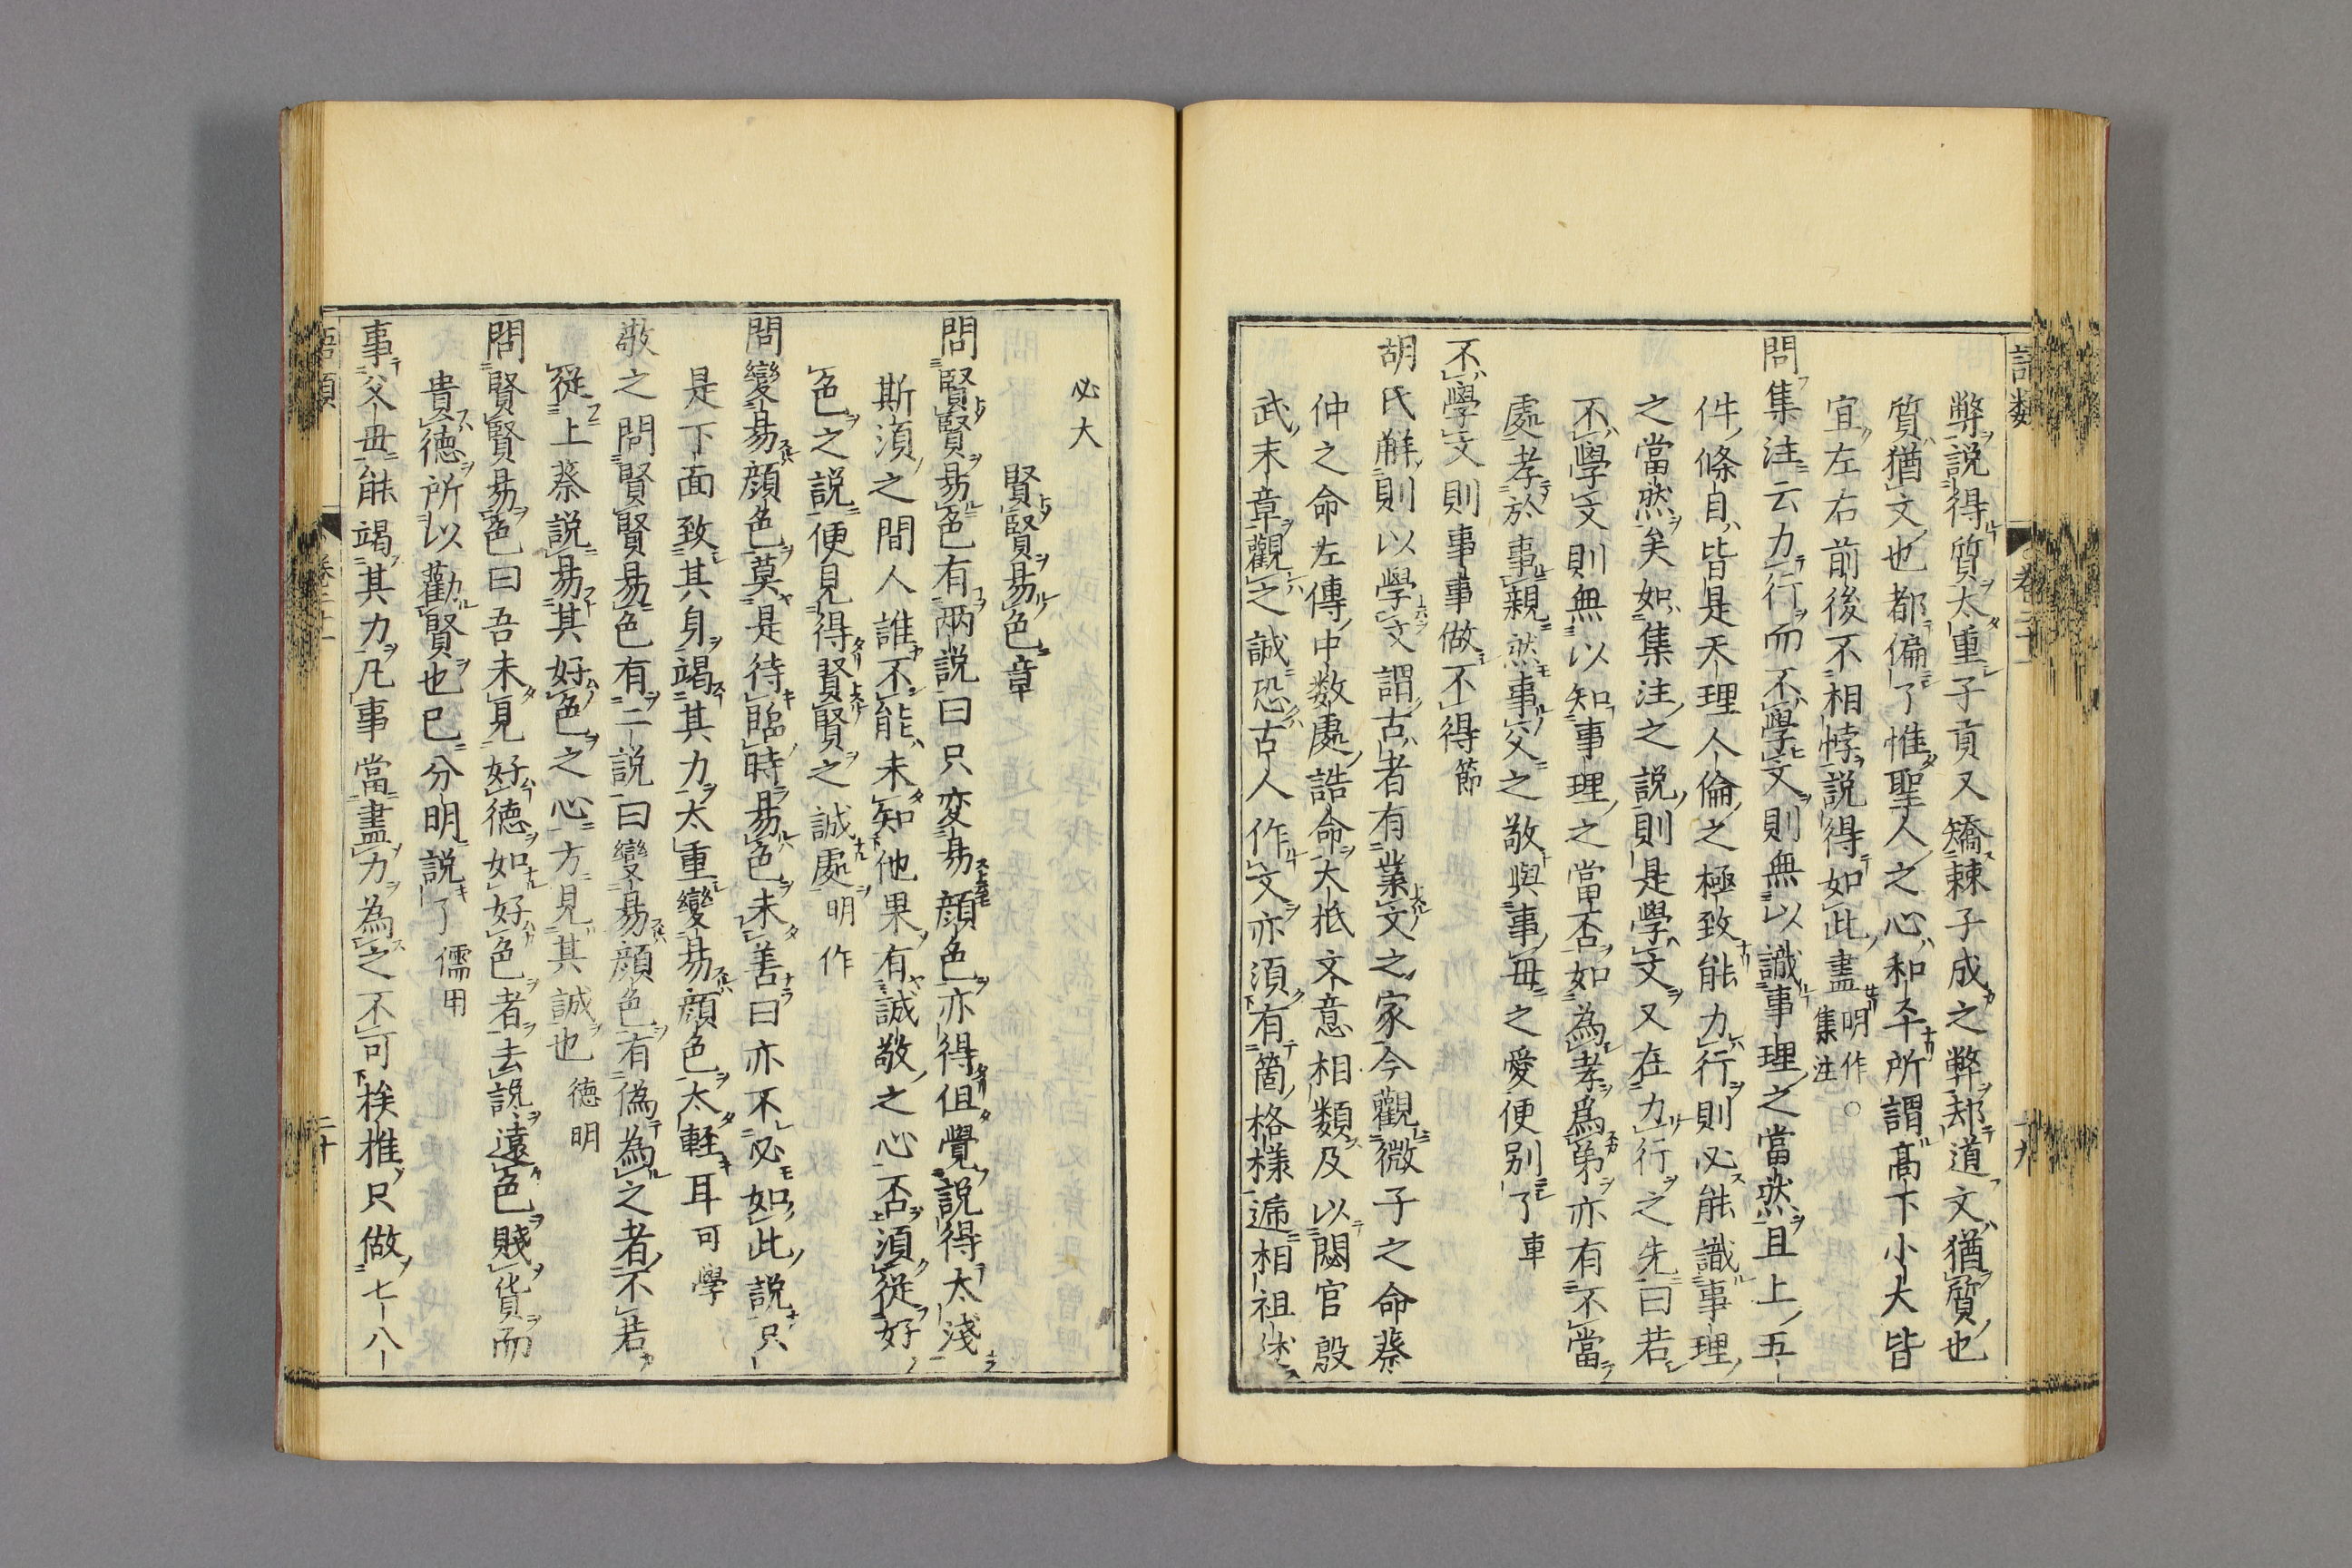 弊說得質太重子貢又矯棘子成之弊却道文猶質也
質猶文也都偏了惟聖人之心和平所謂高下小大皆
宜左右前後不相悖說得如此盡 明作 集注 ○
問集注云力行而不學文則無以識事理之當然且上五
件條自皆是天理人倫之極致能力行則必能識事理
之當然矣如集注之說則是學文又在力行之先曰若
不學文則無以知事理之當否如為孝為弟亦有不當
處孝於事親然事父之敬與事母之愛便別了 車
不學文則事事做不得 節
胡氏解則以學文謂古者有業文之家今觀微子之命蔡
仲之命左傳中数處誥命大抵文意相類及以閟官殷
武末章觀之誠恐古人作文亦須有箇格樣遞相祖述
必大
賢賢易色章
問賢賢易色有兩説曰只変易顔色亦得但覺説得太淺
斯湏之間人誰不能未知他果有誠敬之心否湏從好
色之説便見得賢賢之誠處 明作
問變易顔色莫是待臨時易色未善曰亦不必如此説只
是下面致其身竭其力太重變易顔色太輕耳 可學
敬之問賢賢易色有二説曰變易顔色有偽為之者不若
從上蔡説易其好色之心方見其誠也 德明
問賢賢易色曰吾未見好德如好色者去讒遠色賤貨而
貴德所以勸賢也已分明説了 儒用
事父母能竭其力凡事當盡力為之不可挨推只做七八
語類
卷二十一
二十